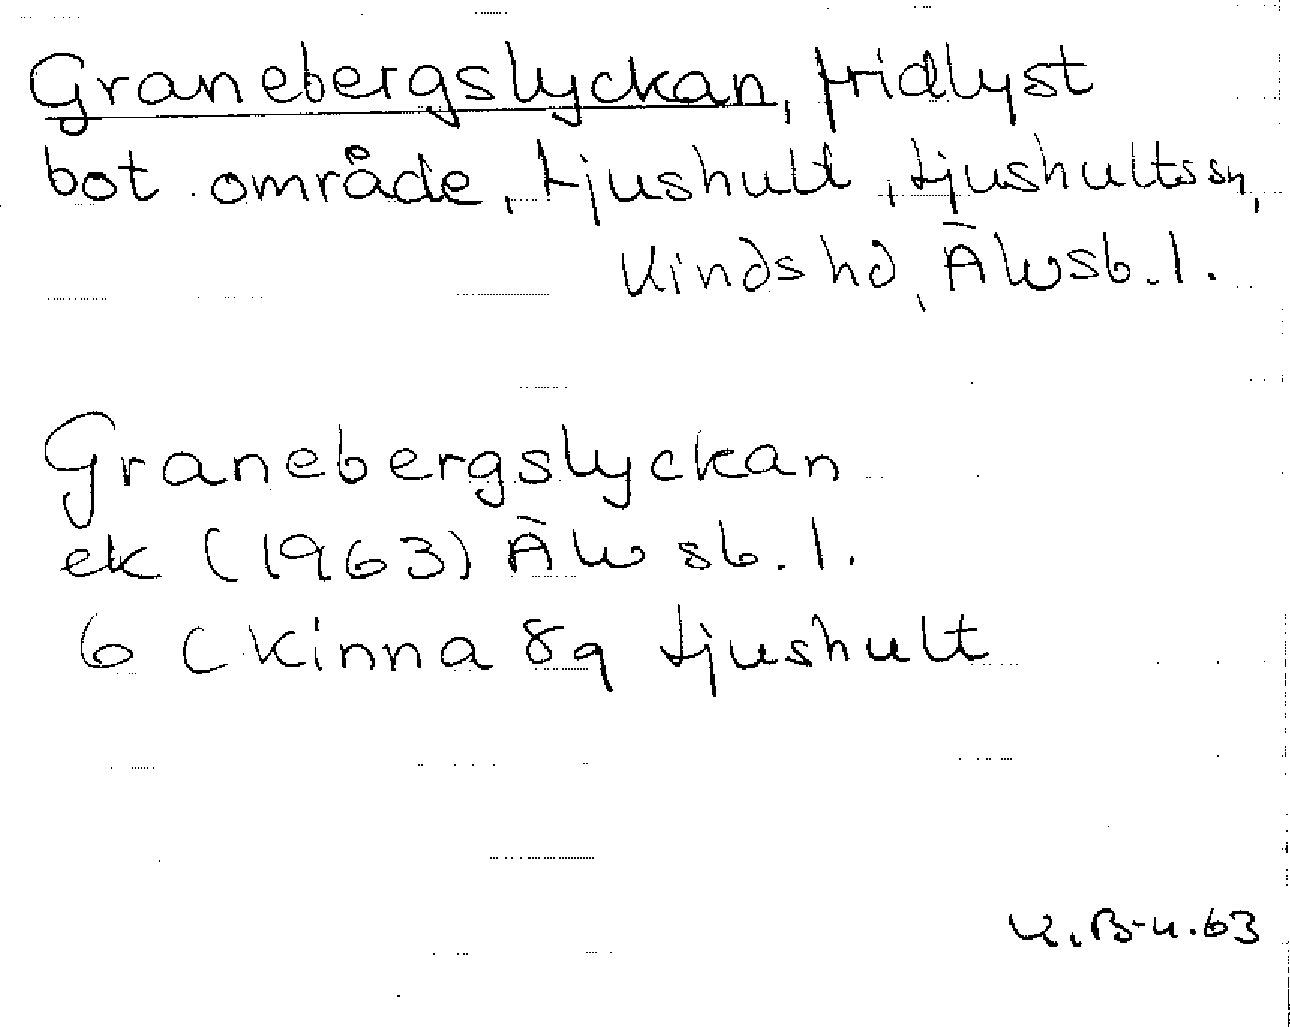 Granebergslyckan, fridlyst
bot. område, Ljushult, Ljushults sn,
Kinds hd, Älvsb. l.
Granebergslyckan
ek (1963) Älvsb. l.
6 C Kinna 8q Ljushult
K. B-u. 63